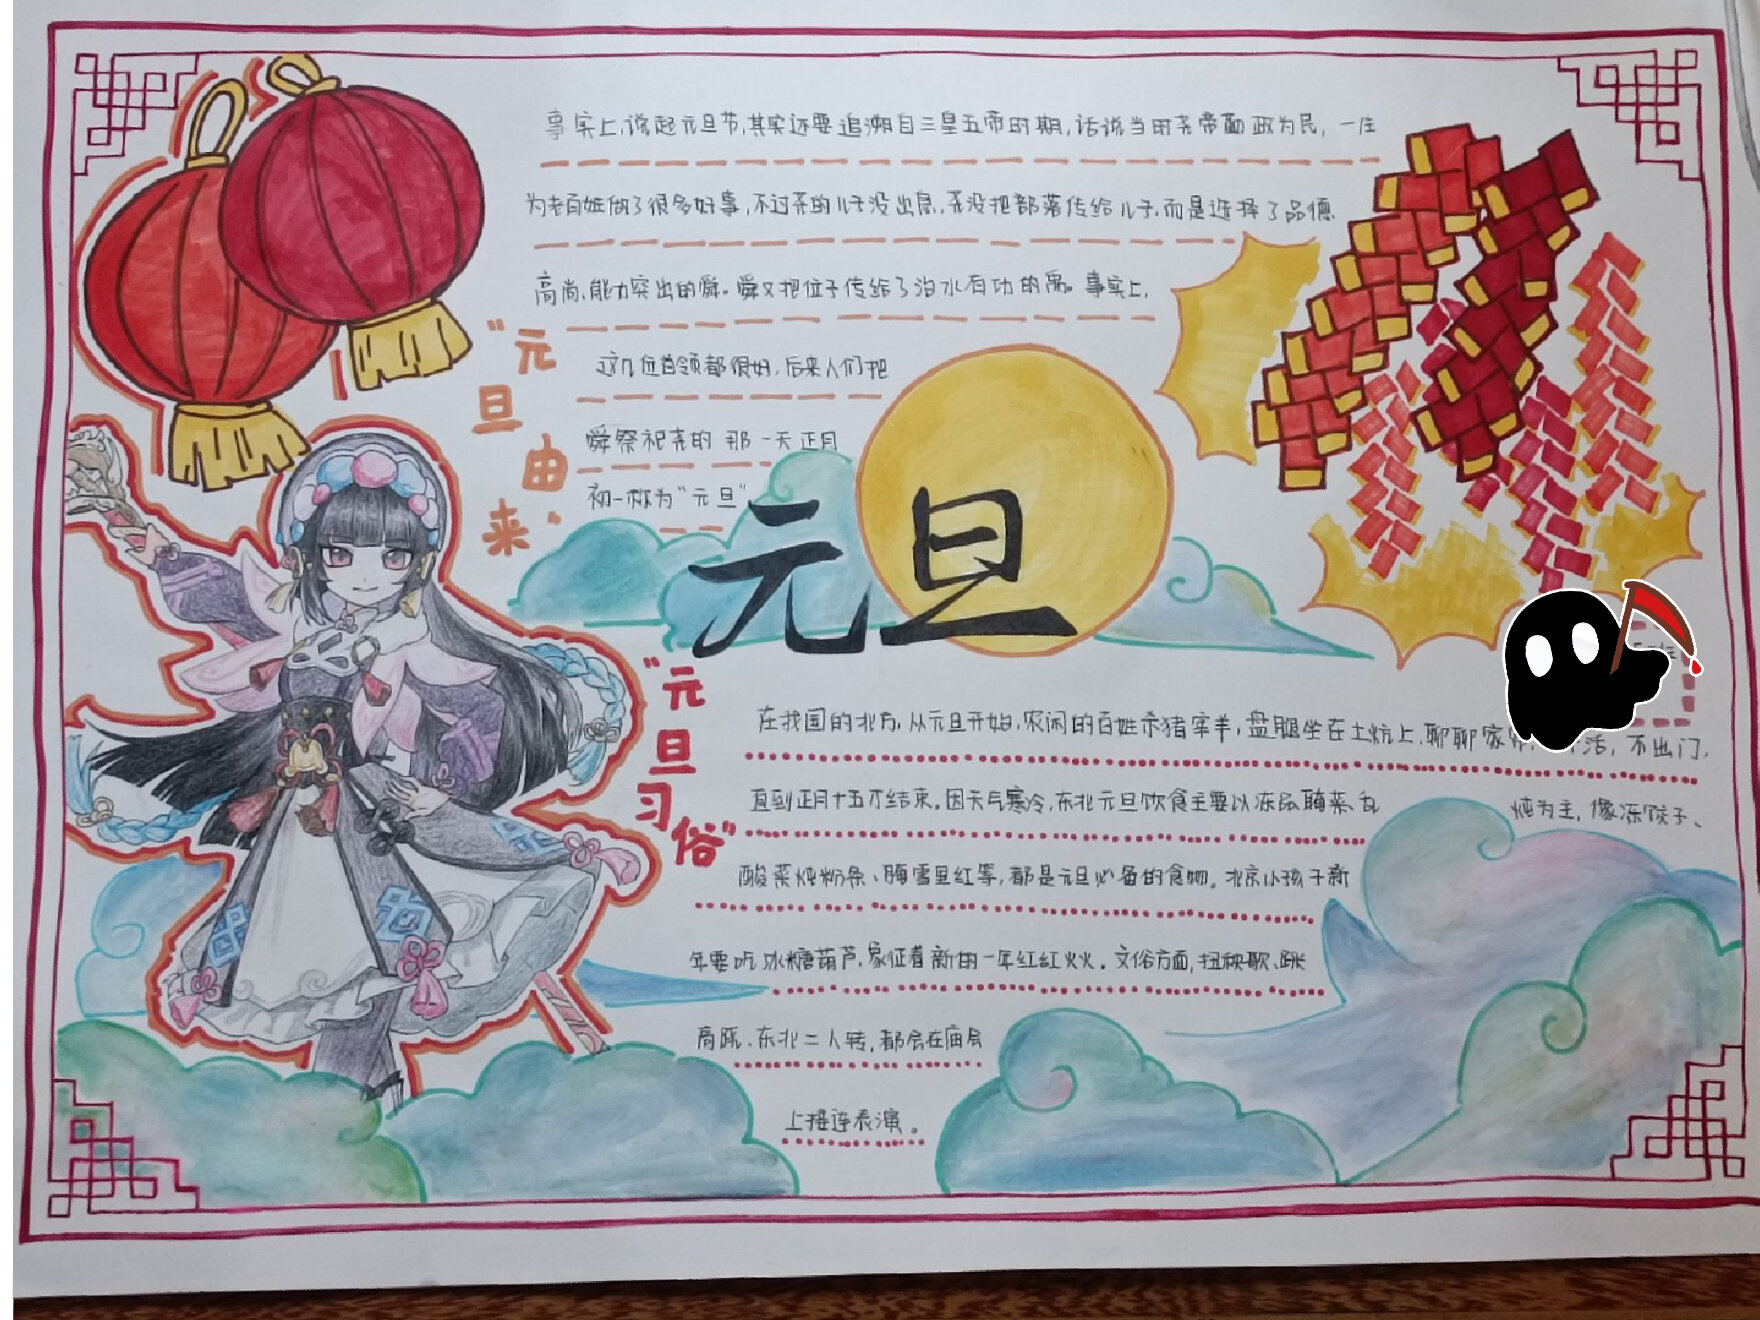 事实上,说起元旦节,其实还要追溯自三皇五帝时期,话说当时尧帝勤政为民,一生
为老百姓做了很多好事,不过尧的儿子没出息,尧没把部落传给儿子,而是选择了品德
高尚、能力突出的舜。舜又把位子传给了治水有功的禹。事实上,
这几位首领都很好,后来人们把
舜祭祀尧的那一天正月
初一称为"元旦"
"元旦由来"
元旦
"元旦习俗"
在我国的北方,从元旦开始,农闲的百姓杀猪宰羊,盘腿坐在土炕上,聊聊家 活,不出门,
直到正月十五才结束。因天气寒冷,东北元旦饮食主要以冻品、腌菜、乱炖为主,像冻饺子、
酸菜炖粉条、腌雪里红等,都是元旦必备的食物。北京小孩子新
年要吃冰糖葫芦,象征着新的一年红红火火。文俗方面,扭秧歌、跳
高跷、东北二人转,都会在庙会
上接连表演。